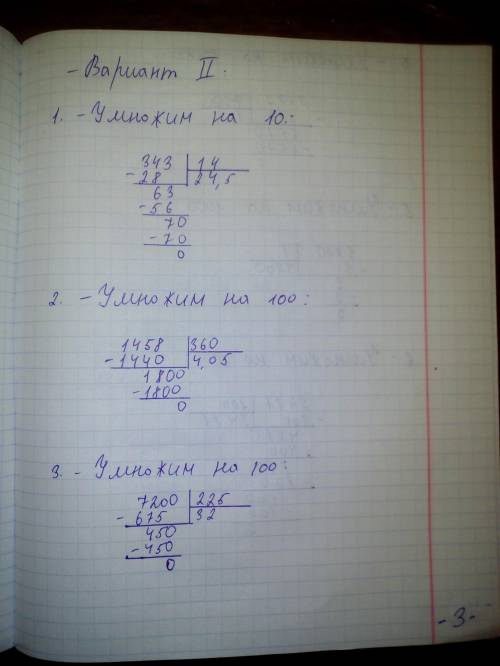 - Вариант II.
1. - Умножим на 10:
343 14
- 28 24,5
63
- 56
70
- 70
0
2. - Умножим на 100:
1458 360
- 1440 4,05
1800
- 1800
0
3. - Умножим на 100:
7200 225
- 675 32
450
- 450
0
- 3 -